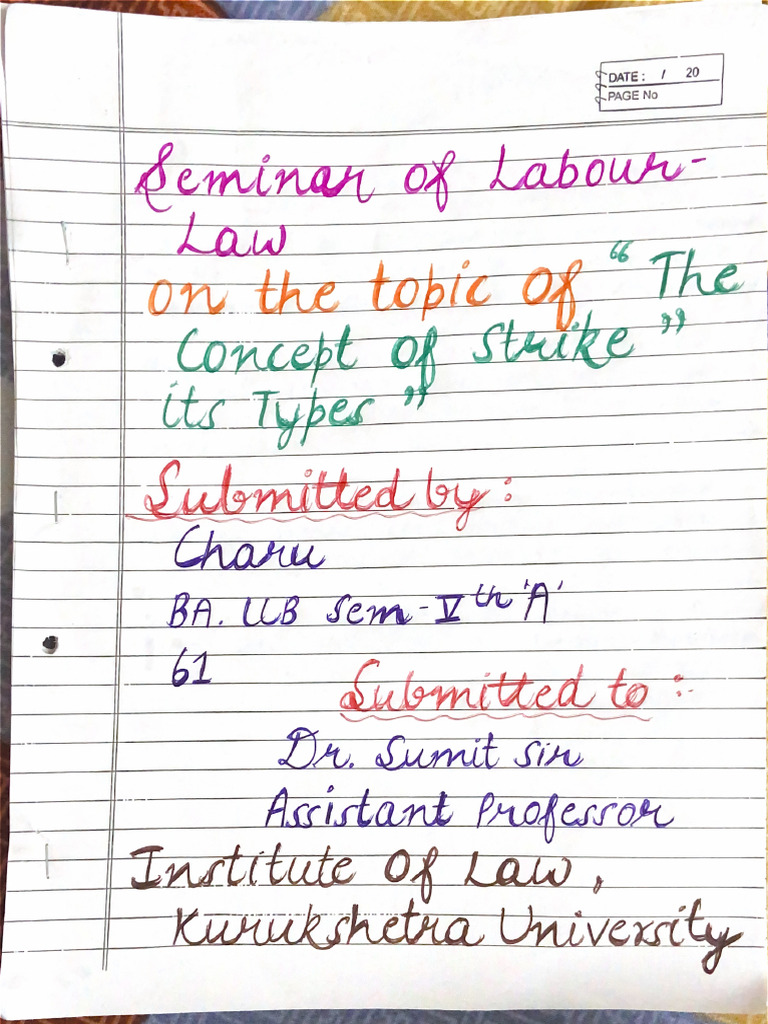 DATE: / 20
PAGE No
Seminar of Labour-
Law
on the topic of “The
Concept of Strike”
its Types”
Submitted by:
Charu
BA. LLB Sem-Vth 'A'
61
Submitted to :-
Dr. Sumit Sir
Assistant Professor
Institute Of Law,
Kurukshetra University